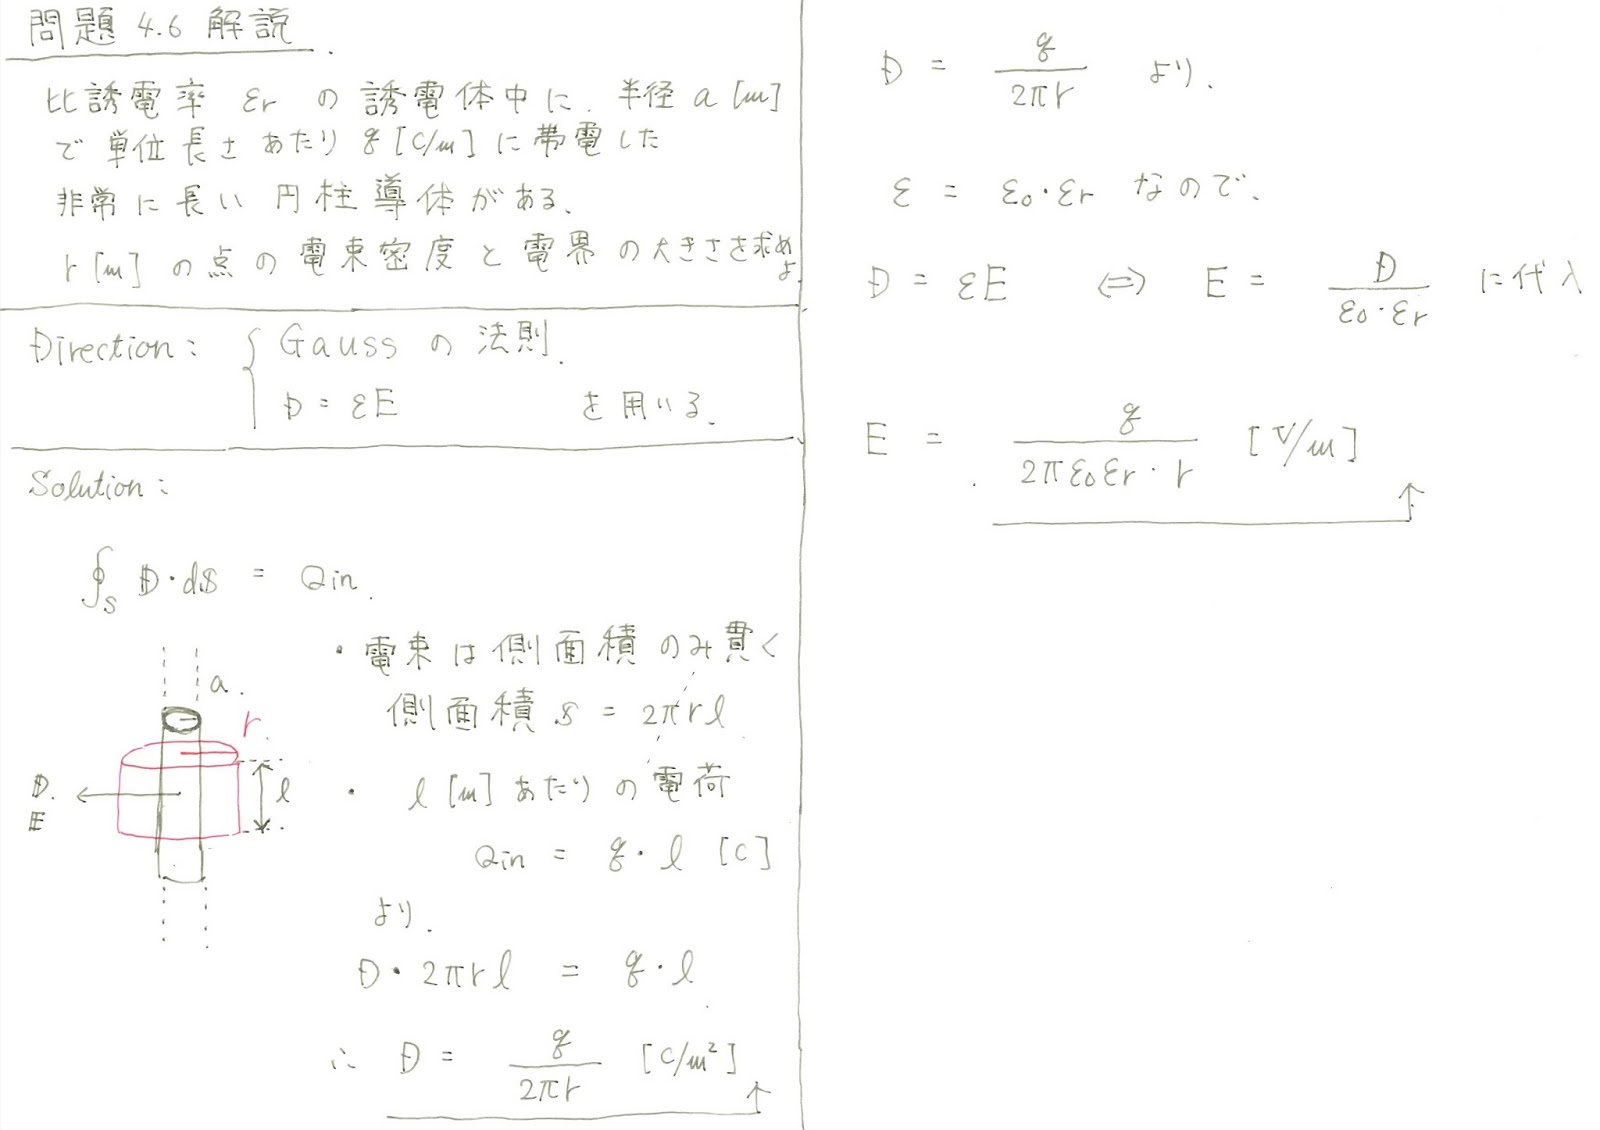 問題 4.6 解説
比誘電率 εr の誘電体中に. 半径 a [m]
で単位長さあたり q [C/m] に帯電した
非常に長い円柱導体がある.
r [m] の点の電束密度と電界の大きさを求めよ
Direction: { Gauss の法則.
D = εE を用いる.
Solution:
∮s D・dS = Qin.
・電束は側面積のみ貫く
側面積 S = 2πrl
a.
r.
D.
E
l
・ l [m] あたりの電荷
Qin = q・l [C]
より.
D・2πrl = q・l
∴ D = q/2πr [C/m²]
D = q/2πr より.
ε = ε0・εr なので.
D = εE ⇔ E = D/ε0・εr に代入
E = q/2πε0εr・r [V/m]